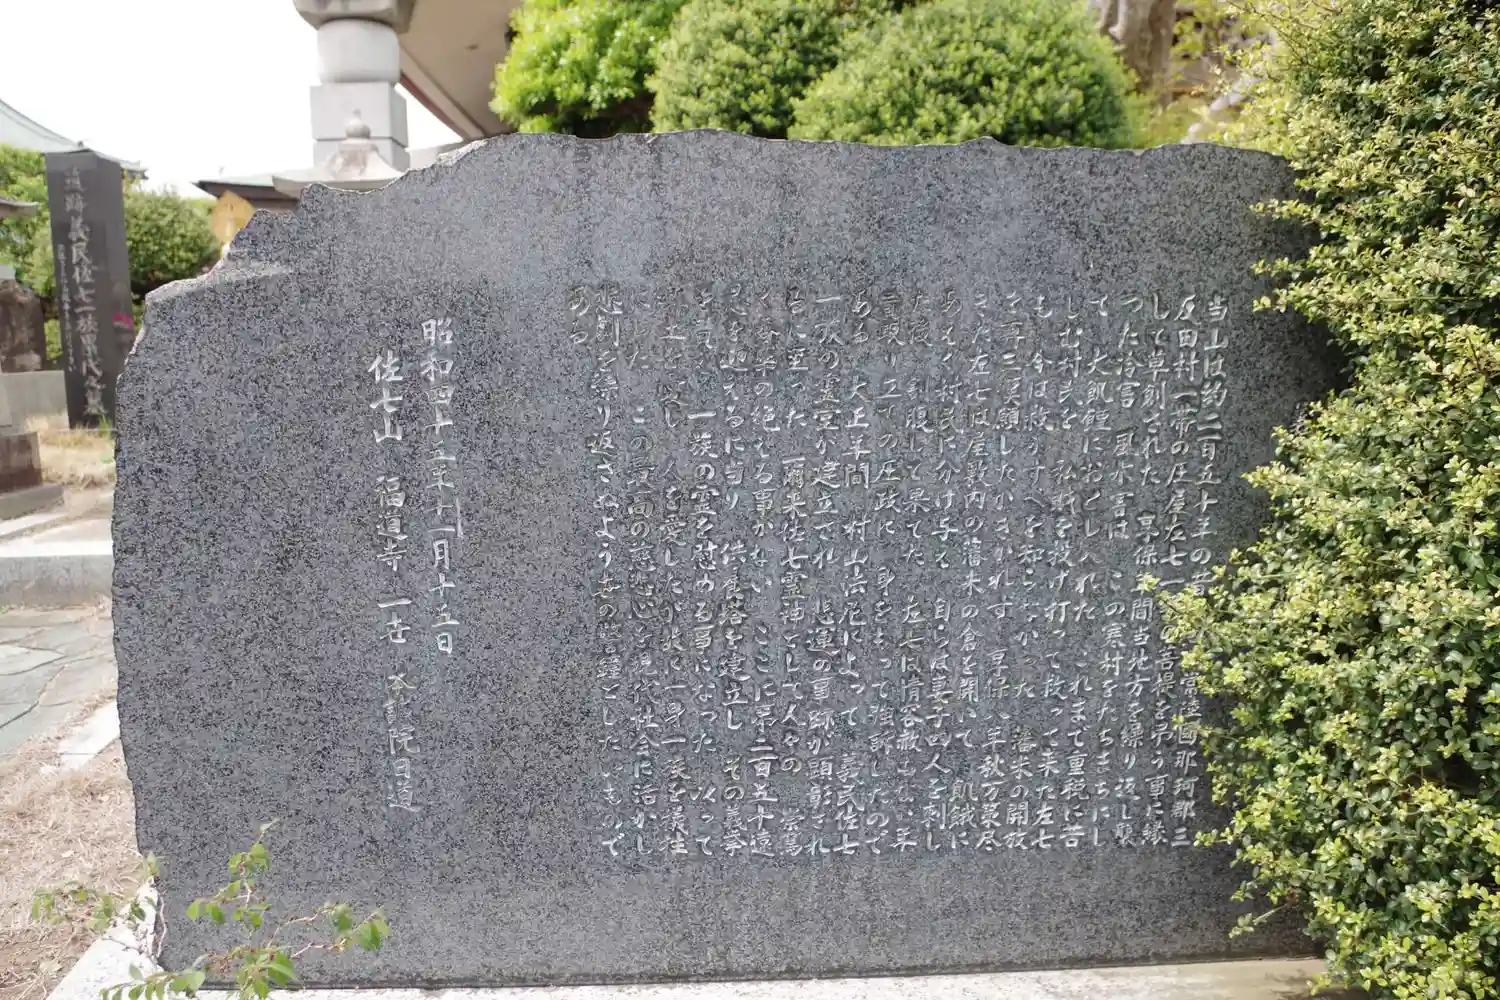 当山は約二百五十年の昔 常陸国那珂郡三
反田村一帯の庄屋左七一 の菩提を弔う事に縁
して草創された 享保年間当地方を繰り返し襲
った冷害 風水害は この寒村をたちまちにし
て 大飢饉におとしいれた これまで重税に苦
しむ村民を 私財を投げ打って救って来た左七
も 今は救うすべを知らなかった 藩米の開放
を再三哀願したがきかれず 享保八年秋万策尽
きた左七は屋敷内の藩米の倉を開いて 飢餓に
あえぐ村民に分け与え 自らは妻子四人を刺し
た後 割腹して果てた 左七は情容赦もない年
貢取り立ての圧政に 身をもって強訴したので
ある 大正年間 村山法尼によって 義民佐七
一族の霊堂が建立され 悲運の事跡が顕彰され
るに至った 爾来佐七霊神として人々の 崇篤
く 香華の絶てる事がない ここに第二百五十遠
忌を迎えるに当り 供養塔を建立し その義挙
を 一族の霊を慰める事になった 以って
土を愛し 人を愛したが故に一身一族を犠牲
にした この最高の慈悲心を現代社会に活かし
悲劇を繰り返さぬよう世の警鐘としたいもので
ある
昭和四十五年十一月十五日
佐七山 福道寺 一世 院日道
義民佐七一族